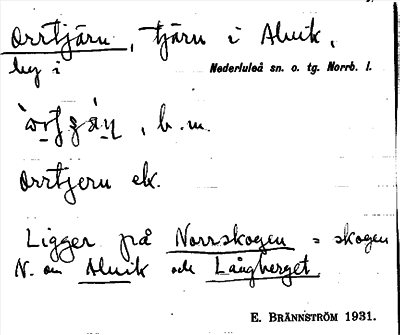 Orrtjärn, tjärn i Alvik,
by i Nederluleå sn. o. tg. Norrb. l.
, b. m.
Orrtjern ek.
Ligger på Norrskogen = skogen
N. om Alvik och Långberget.
E. BRÄNNSTRÖM 1931.